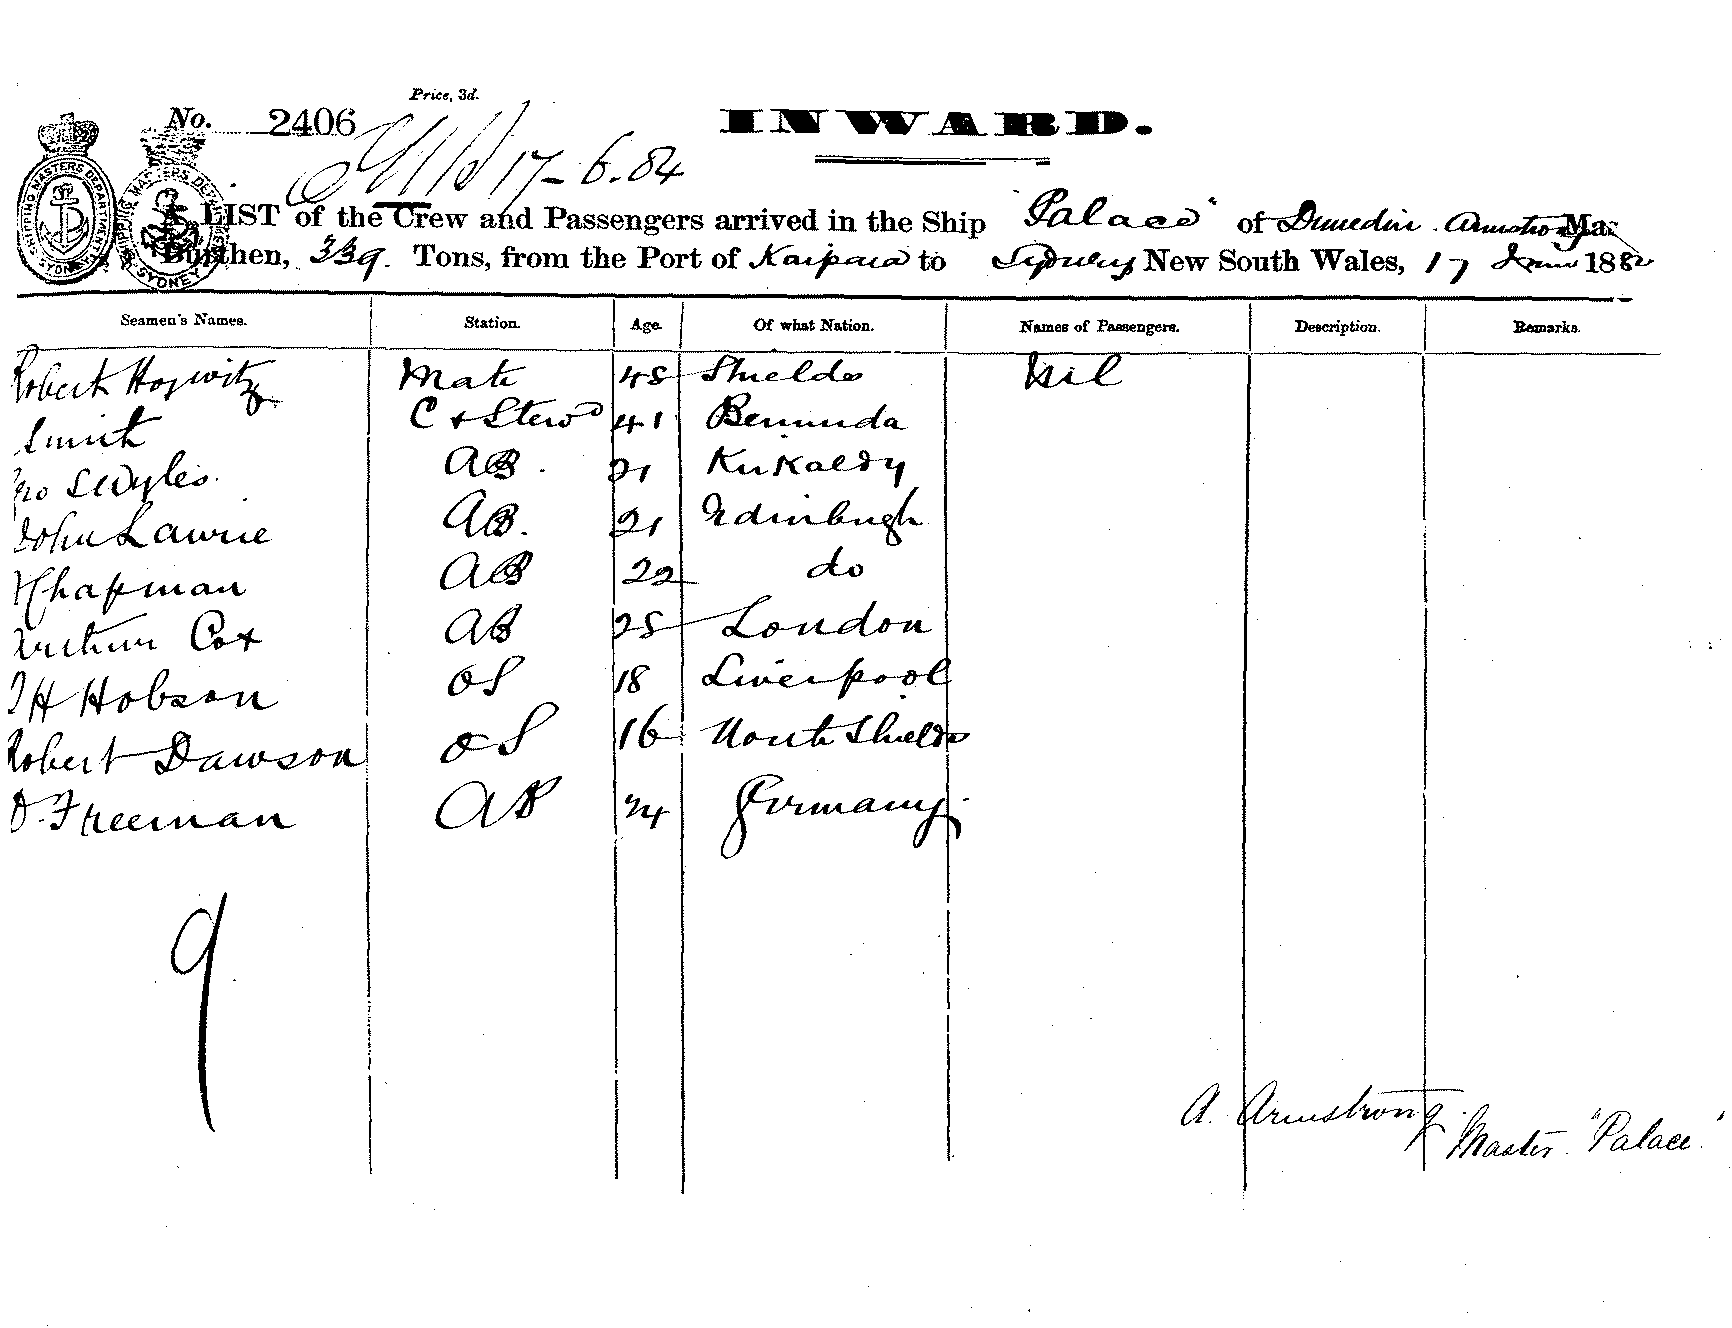 Price, 3d.
No. 2406
INWARD.
17-6.84
A LIST of the Crew and Passengers arrived in the Ship "Palace" of Dunedin. Armstrong Ma
Burthen, 339. Tons, from the Port of Kaipara to Sydney New South Wales, 17 June 188
Seamen's Names. Station. Age. Of what Nation. Names of Passengers. Description. Remarks.
Robert Mate 45 Shields Nil
Smith C & Stewd 41 Bermuda
AB. 21 Kirkaldy
John Lawrie AB. 21 Edinburgh
Chapman AB 22 do
Arthur Cox AB 25 London
H Hobson OS 18 Liverpool
Robert Dawson OS 16 North Shields
D. Freeman AB 24 Germany
9
A. Armstrong
Master "Palace"
SHIPPING MASTERS DEPARTMENT
SYDNEY
SHIPPING MASTERS DEPARTMENT
SYDNEY